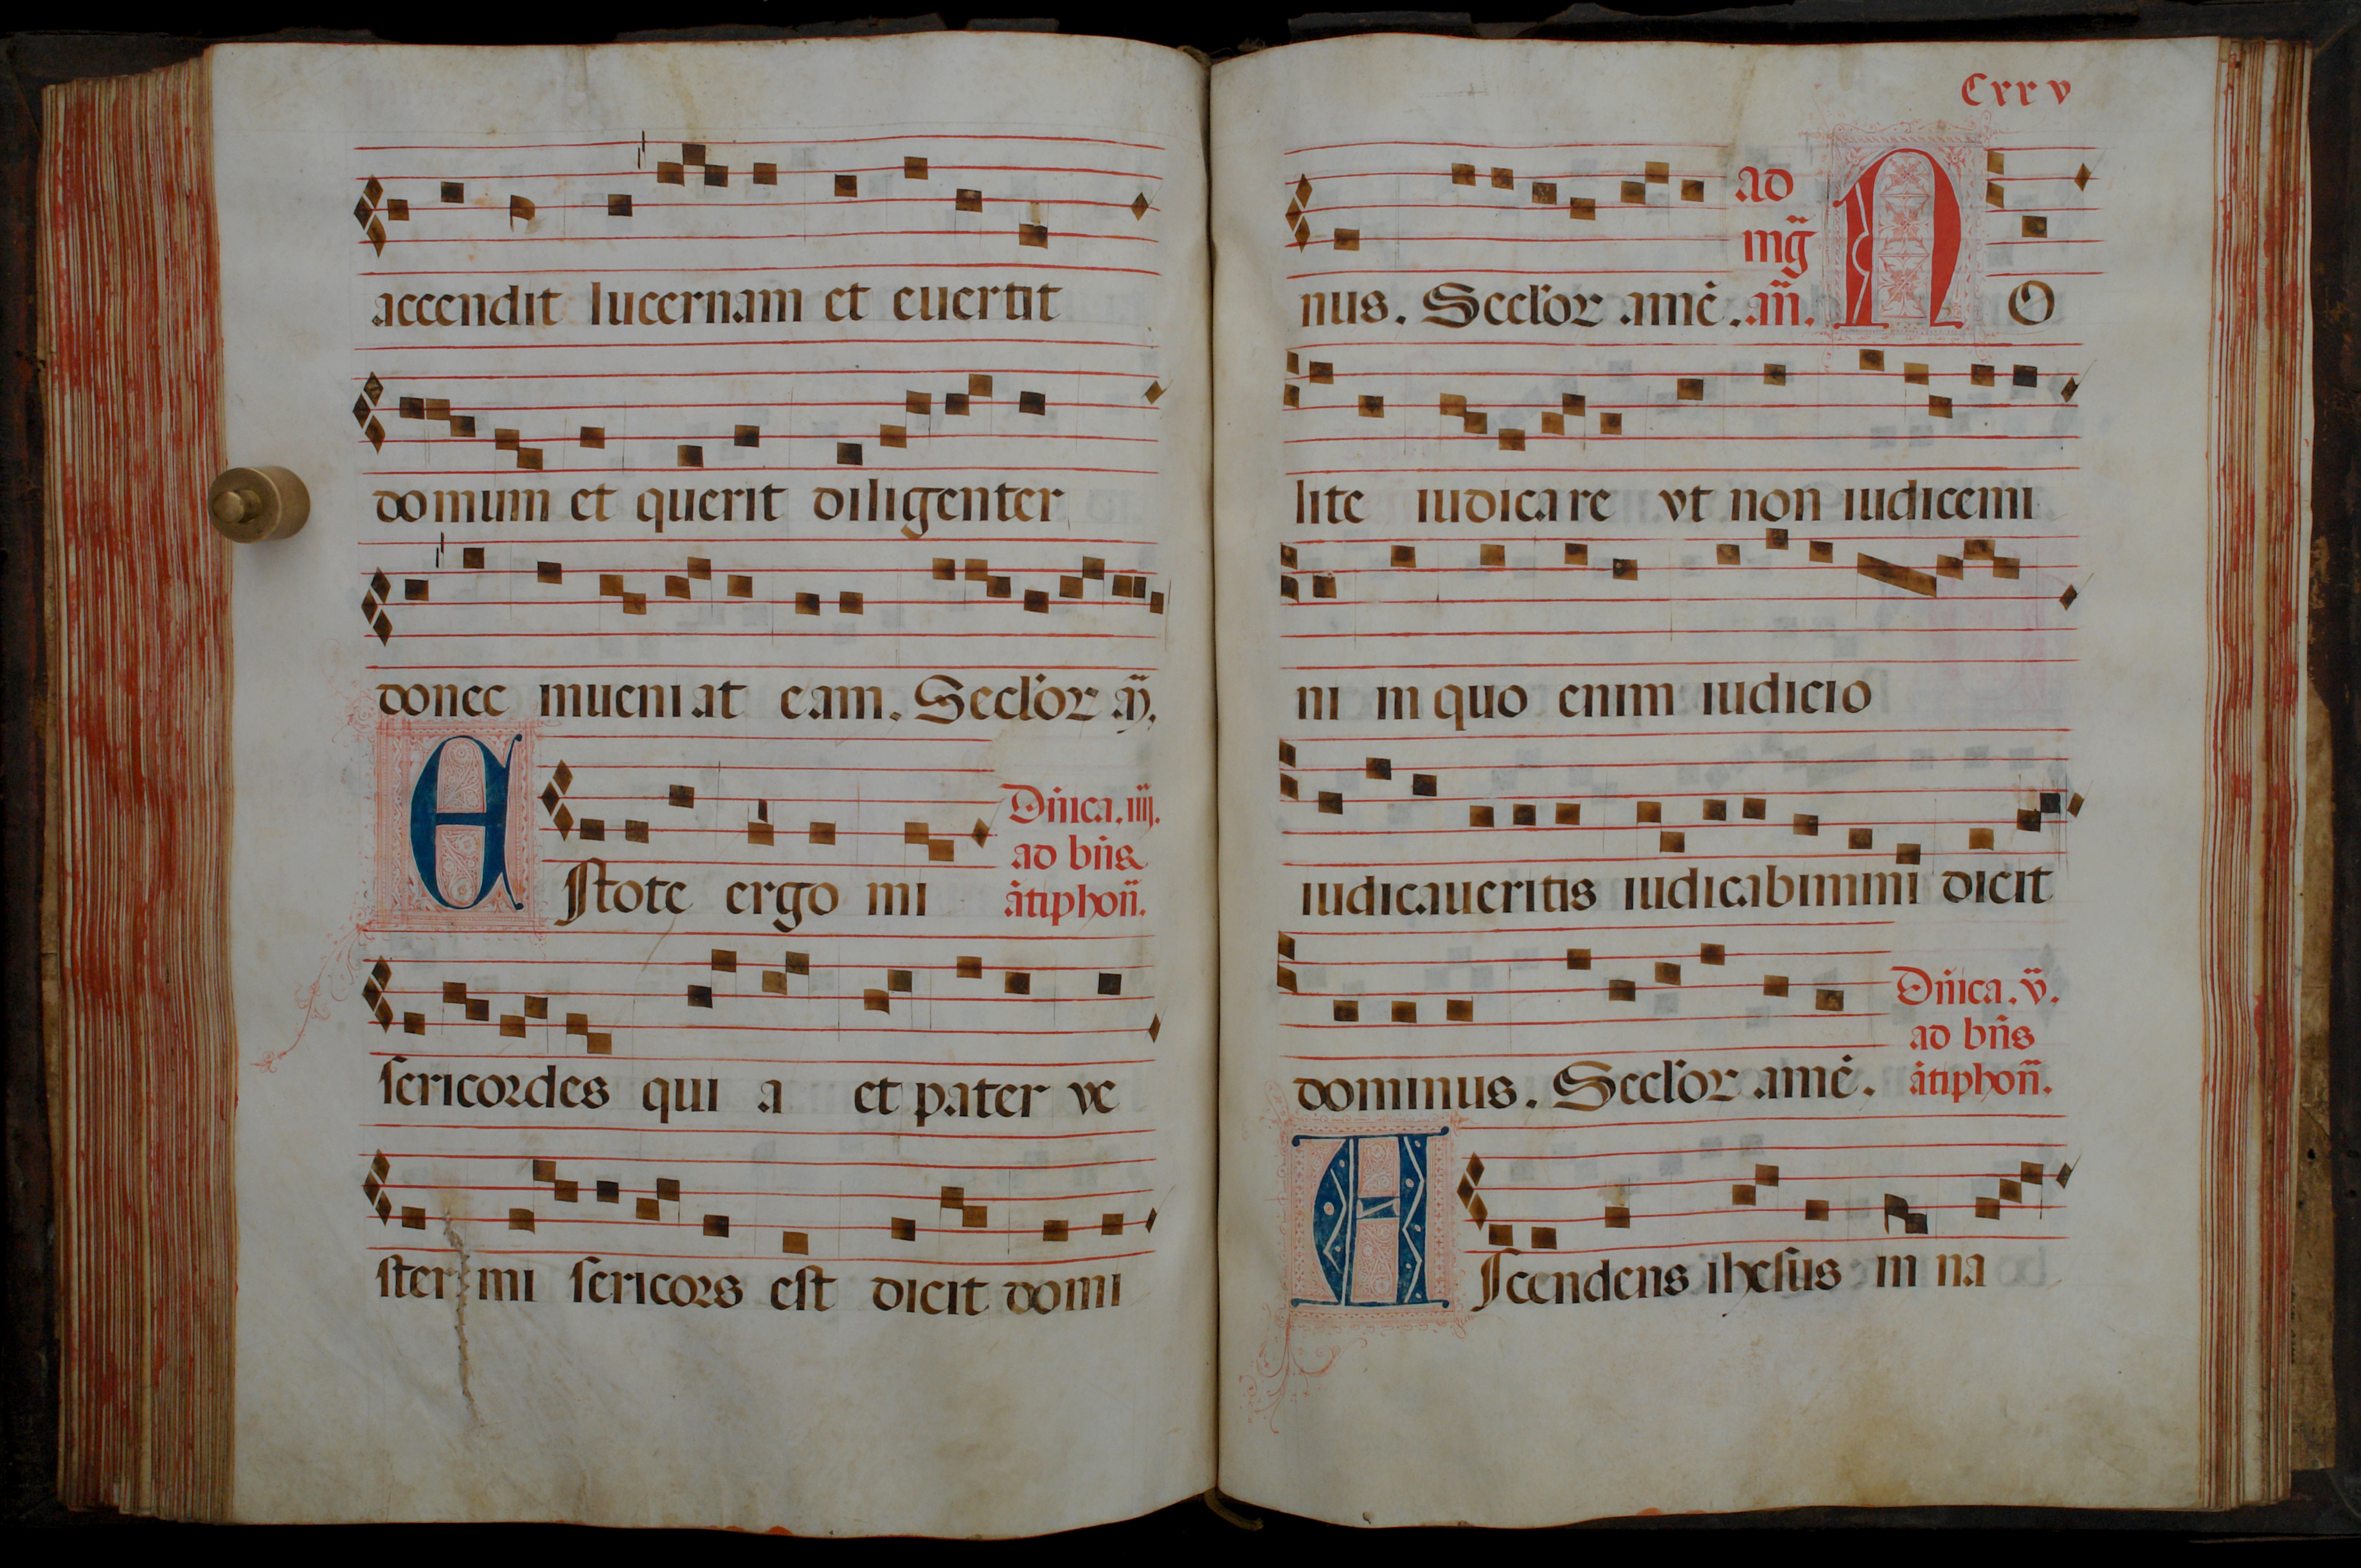 accendit lucernam et euertit
domum et querit diligenter
donec inueniat eam. Seclor aɱ̃.
E
Dñica. iiij.
ad bñs
ãtiphoñ.
ſtote ergo mi
ſericordes qui a et pater ve
ſter mi ſericors eſt dicit domi
Cxxv
nus. Seclor amē.
ad
mg̃
añ.
N
O
lite iudicare vt non iudicemi
ni in quo enim iudicio
iudicaueritis iudicabimini dicit
dominus. Seclor amē.
Dñica. v̈.
ad bñs
ãtiphoñ.
A
ſcendens iheſus in na